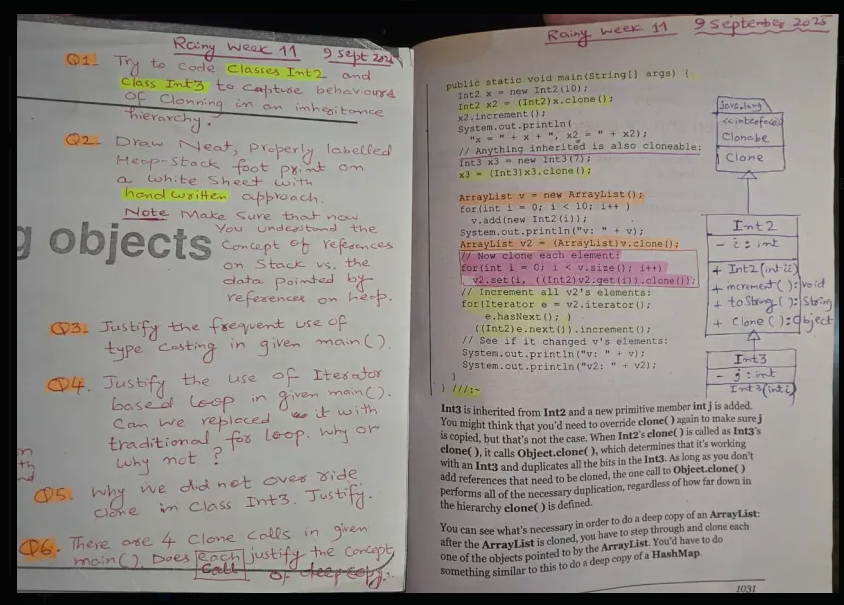 Rainy Week 11 9 Sept 2025
Q1. Try to code Classes Int2 and
Class Int3 to capture behaviours
of Clonning in an inheritance
hierarchy.
Q2. Draw Neat, properly labelled
Heap-Stack foot print on
a white Sheet with
hand written approach.
Note Make Sure that now
You understand the
Concept of references
on Stack vs. the
data pointed by
references on heap.
g objects
Q3. Justify the frequent use of
type casting in given main().
Q4. Justify the use of Iterator
based loop in given main().
Can we replaced it with
traditional for loop. why or
why not ?
Q5. Why we did not over ride
clone in Class Int3. Justify.
Q6. There are 4 Clone calls in given
main(). Does each justify the concept
Call of deep copy.
Rainy week 11 9 September 2025
public static void main(String[] args) {
Int2 x = new Int2(10);
Int2 x2 = (Int2)x.clone();
x2.increment();
System.out.println(
"x = " + x + ", x2 = " + x2);
// Anything inherited is also cloneable:
Int3 x3 = new Int3(7);
x3 = (Int3)x3.clone();
ArrayList v = new ArrayList();
for(int i = 0; i < 10; i++ )
v.add(new Int2(i));
System.out.println("v: " + v);
ArrayList v2 = (ArrayList)v.clone();
// Now clone each element:
for(int i = 0; i < v.size(); i++)
v2.set(i, ((Int2)v2.get(i)).clone());
// Increment all v2's elements:
for(Iterator e = v2.iterator();
e.hasNext(); )
((Int2)e.next()).increment();
// See if it changed v's elements:
System.out.println("v: " + v);
System.out.println("v2: " + v2);
}
} ///:~
java.lang
<<interface>>
Clonabe
Clone
Int2
- i : int
+ Int2(int i)
+ increment() : void
+ toString() : String
+ Clone() : Object
Int3
- j : int
Int3(int i)
Int3 is inherited from Int2 and a new primitive member int j is added.
You might think that you'd need to override clone( ) again to make sure j
is copied, but that's not the case. When Int2's clone( ) is called as Int3's
clone( ), it calls Object.clone( ), which determines that it's working
with an Int3 and duplicates all the bits in the Int3. As long as you don't
add references that need to be cloned, the one call to Object.clone( )
performs all of the necessary duplication, regardless of how far down in
the hierarchy clone( ) is defined.
You can see what's necessary in order to do a deep copy of an ArrayList:
after the ArrayList is cloned, you have to step through and clone each
one of the objects pointed to by the ArrayList. You'd have to do
something similar to this to do a deep copy of a HashMap.
1031